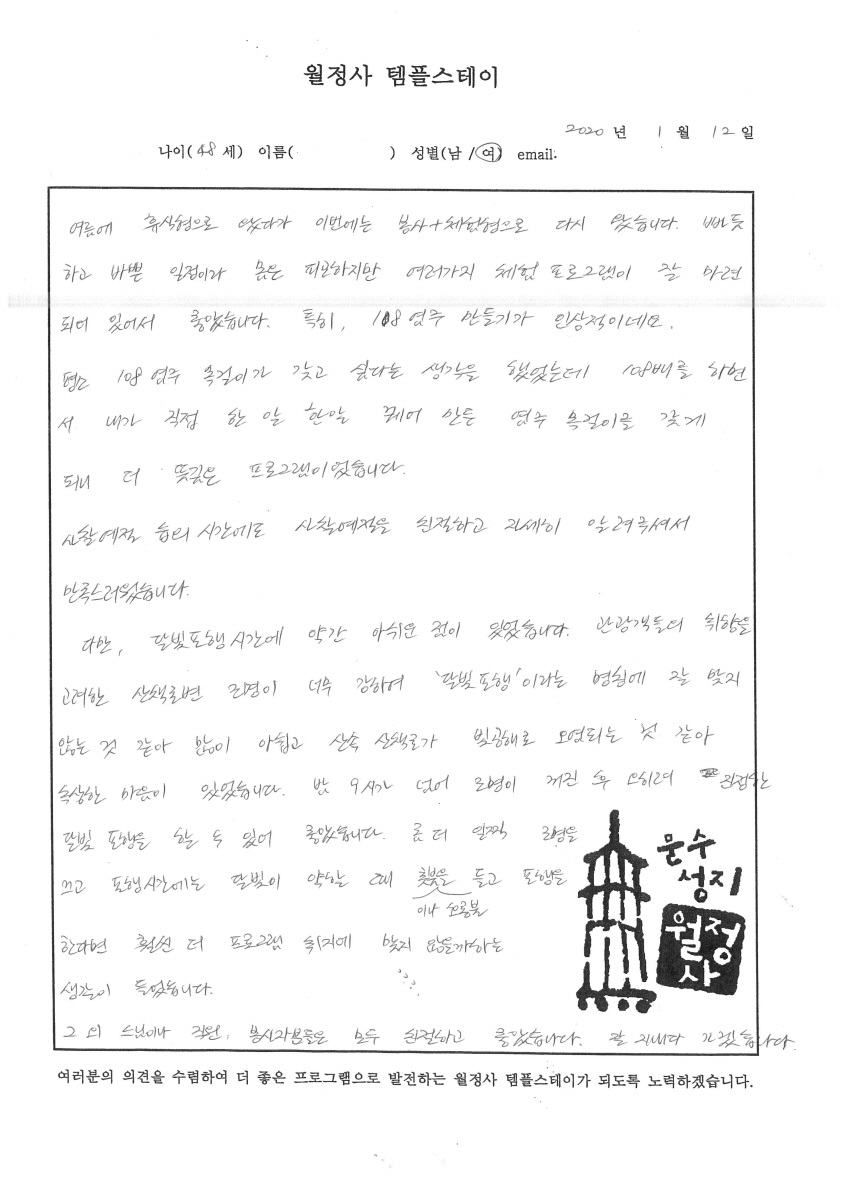 월정사 템플스테이
2020 년 1 월 12 일
나이(48 세) 이름( ) 성별(남 /여) email.
여름에 휴식형으로 왔다가 이번에는 봉사+체험형으로 다시 왔습니다. 빠듯
하고 바쁜 일정이라 몸은 피곤하지만 여러가지 체험 프로그램이 잘 마련
되어 있어서 좋았습니다. 특히, 108 염주 만들기가 인상적이네요.
평소 108 염주 목걸이가 갖고 싶다는 생각을 했었는데 108배를 하면
서 내가 직접 한 알 한알 꿰어 만든 염주 목걸이를 갖게
되니 더 뜻깊은 프로그램이었습니다.
사찰예절 습의 시간에도 사찰예절을 친절하고 자세히 알려주셔서
만족스러웠습니다.
다만, 달빛포행 시간에 약간 아쉬운 점이 있었습니다. 관광객들의 취향을
고려한 산책로변 조명이 너무 강하여 '달빛포행'이라는 명칭에 잘 맞지
않는 것 같아 많이 아쉽고 산속 산책로가 빛공해로 오염되는 것 같아
속상한 마음이 있었습니다. 밤 9시가 넘어 조명이 꺼진 후 오히려 진정한
달빛 포행을 할 수 있어 좋았습니다. 좀 더 일찍 조명을
끄고 포행시간에는 달빛이 약할 때 촛불을 들고 포행을
이나 초롱불
한다면 훨씬 더 프로그램 취지에 맞지 않을까하는
생각이 들었습니다.
그 외 스님이나 직원, 봉사자분들은 모두 친절하고 좋았습니다. 잘 지내다 가겠습니다.
문수
성지
월정
사
여러분의 의견을 수렴하여 더 좋은 프로그램으로 발전하는 월정사 템플스테이가 되도록 노력하겠습니다.